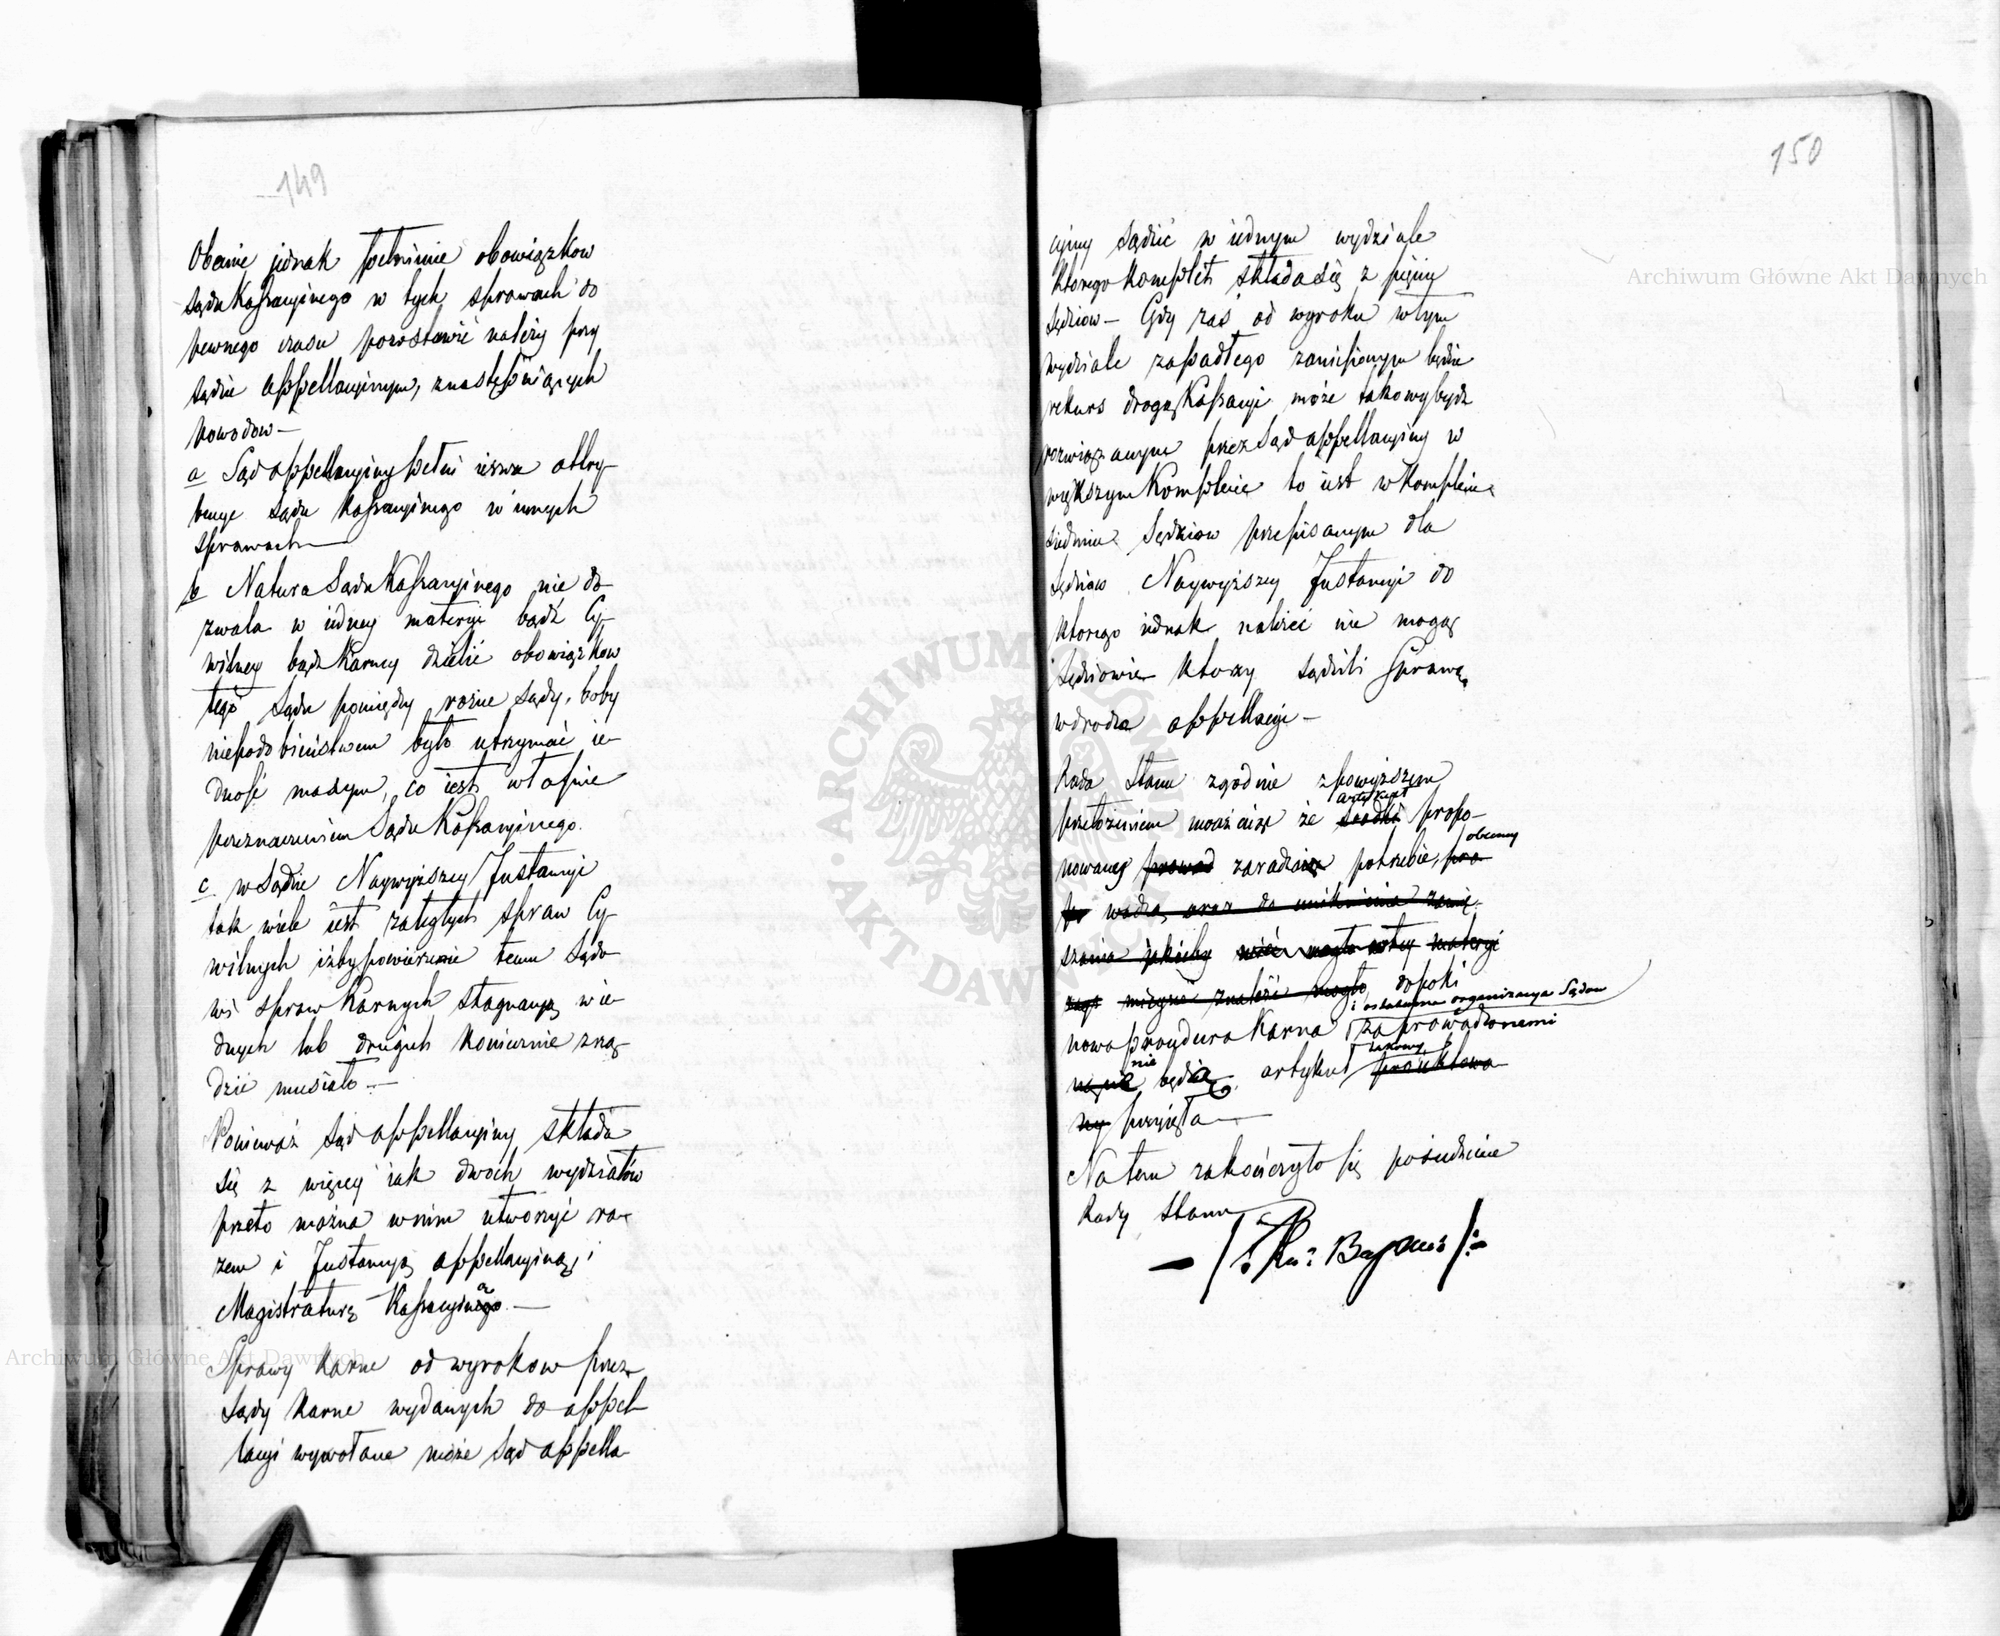 149
Obecnie jednak pełnienie obowiązkow
Sądu Kassacyinego w tych sprawach do
pewnego czasu pozostawić należy przy
Sądzie appellacyinym, z następuiących
powodow —
a Sąd appellacyiny pełni ieszcze attry-
bucye Sądu Kassacyinego w innych
Sprawach —
b Natura Sądu Kassacyinego nie do
zwala w iedney materyi bądź Cy-
wilney bądź Karney dzielić obowiązkow
tego Sądu pomiędzy rożne Sądy, boby
niepodobieństwem było utrzymać ie-
dność maxym, co iest własnie
przeznaczeniem Sądu Kassacyinego.
c w Sądzie Naywyższey Instancyi
tak wiele iest zaległych spraw Cy-
wilnych iżby powierzenie temu Sądo-
wi spraw Karnych stagnacyą w ie-
dnych lub drugich koniecznie zrzą-
dzić musiało —
Ponieważ Sąd appellacyiny składa
się z więcey iak dwoch wydziałow
przeto można w nim utworzyć ra-
zem i Instancyą appellacyiną, i
Magistraturę Kassacyiną —
Sprawy Karne od wyrokow przez
Sądy Karne wydanych do appel-
lacyi wywołane może Sąd appella-
150
cyiny Sądzić w iednym wydziale
ktorego komplet składa się z pięciu
Sędziow — Gdy zaś od wyroku w tym
wydziale zapadłego zaniesionym będzie
rekurs drogą Kassacyi może takowy bydź
rozwiązanym przez Sąd appellacyiny w
większym Komplecie to iest w Komplecie
siedmiu Sędziow przepisanym dla
Sędziow Naywyższey Instancyi do
ktorego iednak należeć nie mogą
Sędziowie ktorzy sądzili Sprawę
w drodze appellacyi —
Rada Stanu zgodnie z powyższem
artykuł
przełożeniem uważaiąc że środki propo-
obecney
nowany prowad zaradza potrzebie, pro
wadzą, oraz do uniknienia zamię-
szania iakieby mieć mogło w tey materyi
mieysce znaleść mogło, dopoki
i ostateczna organizacya Sądow
nowa procedura Karna zaprowadzonemi
nie takowy
będą, artykuł proiektowa
ny przyięła —
Na tem zakończyło się posiedzenie
Rady Stanu